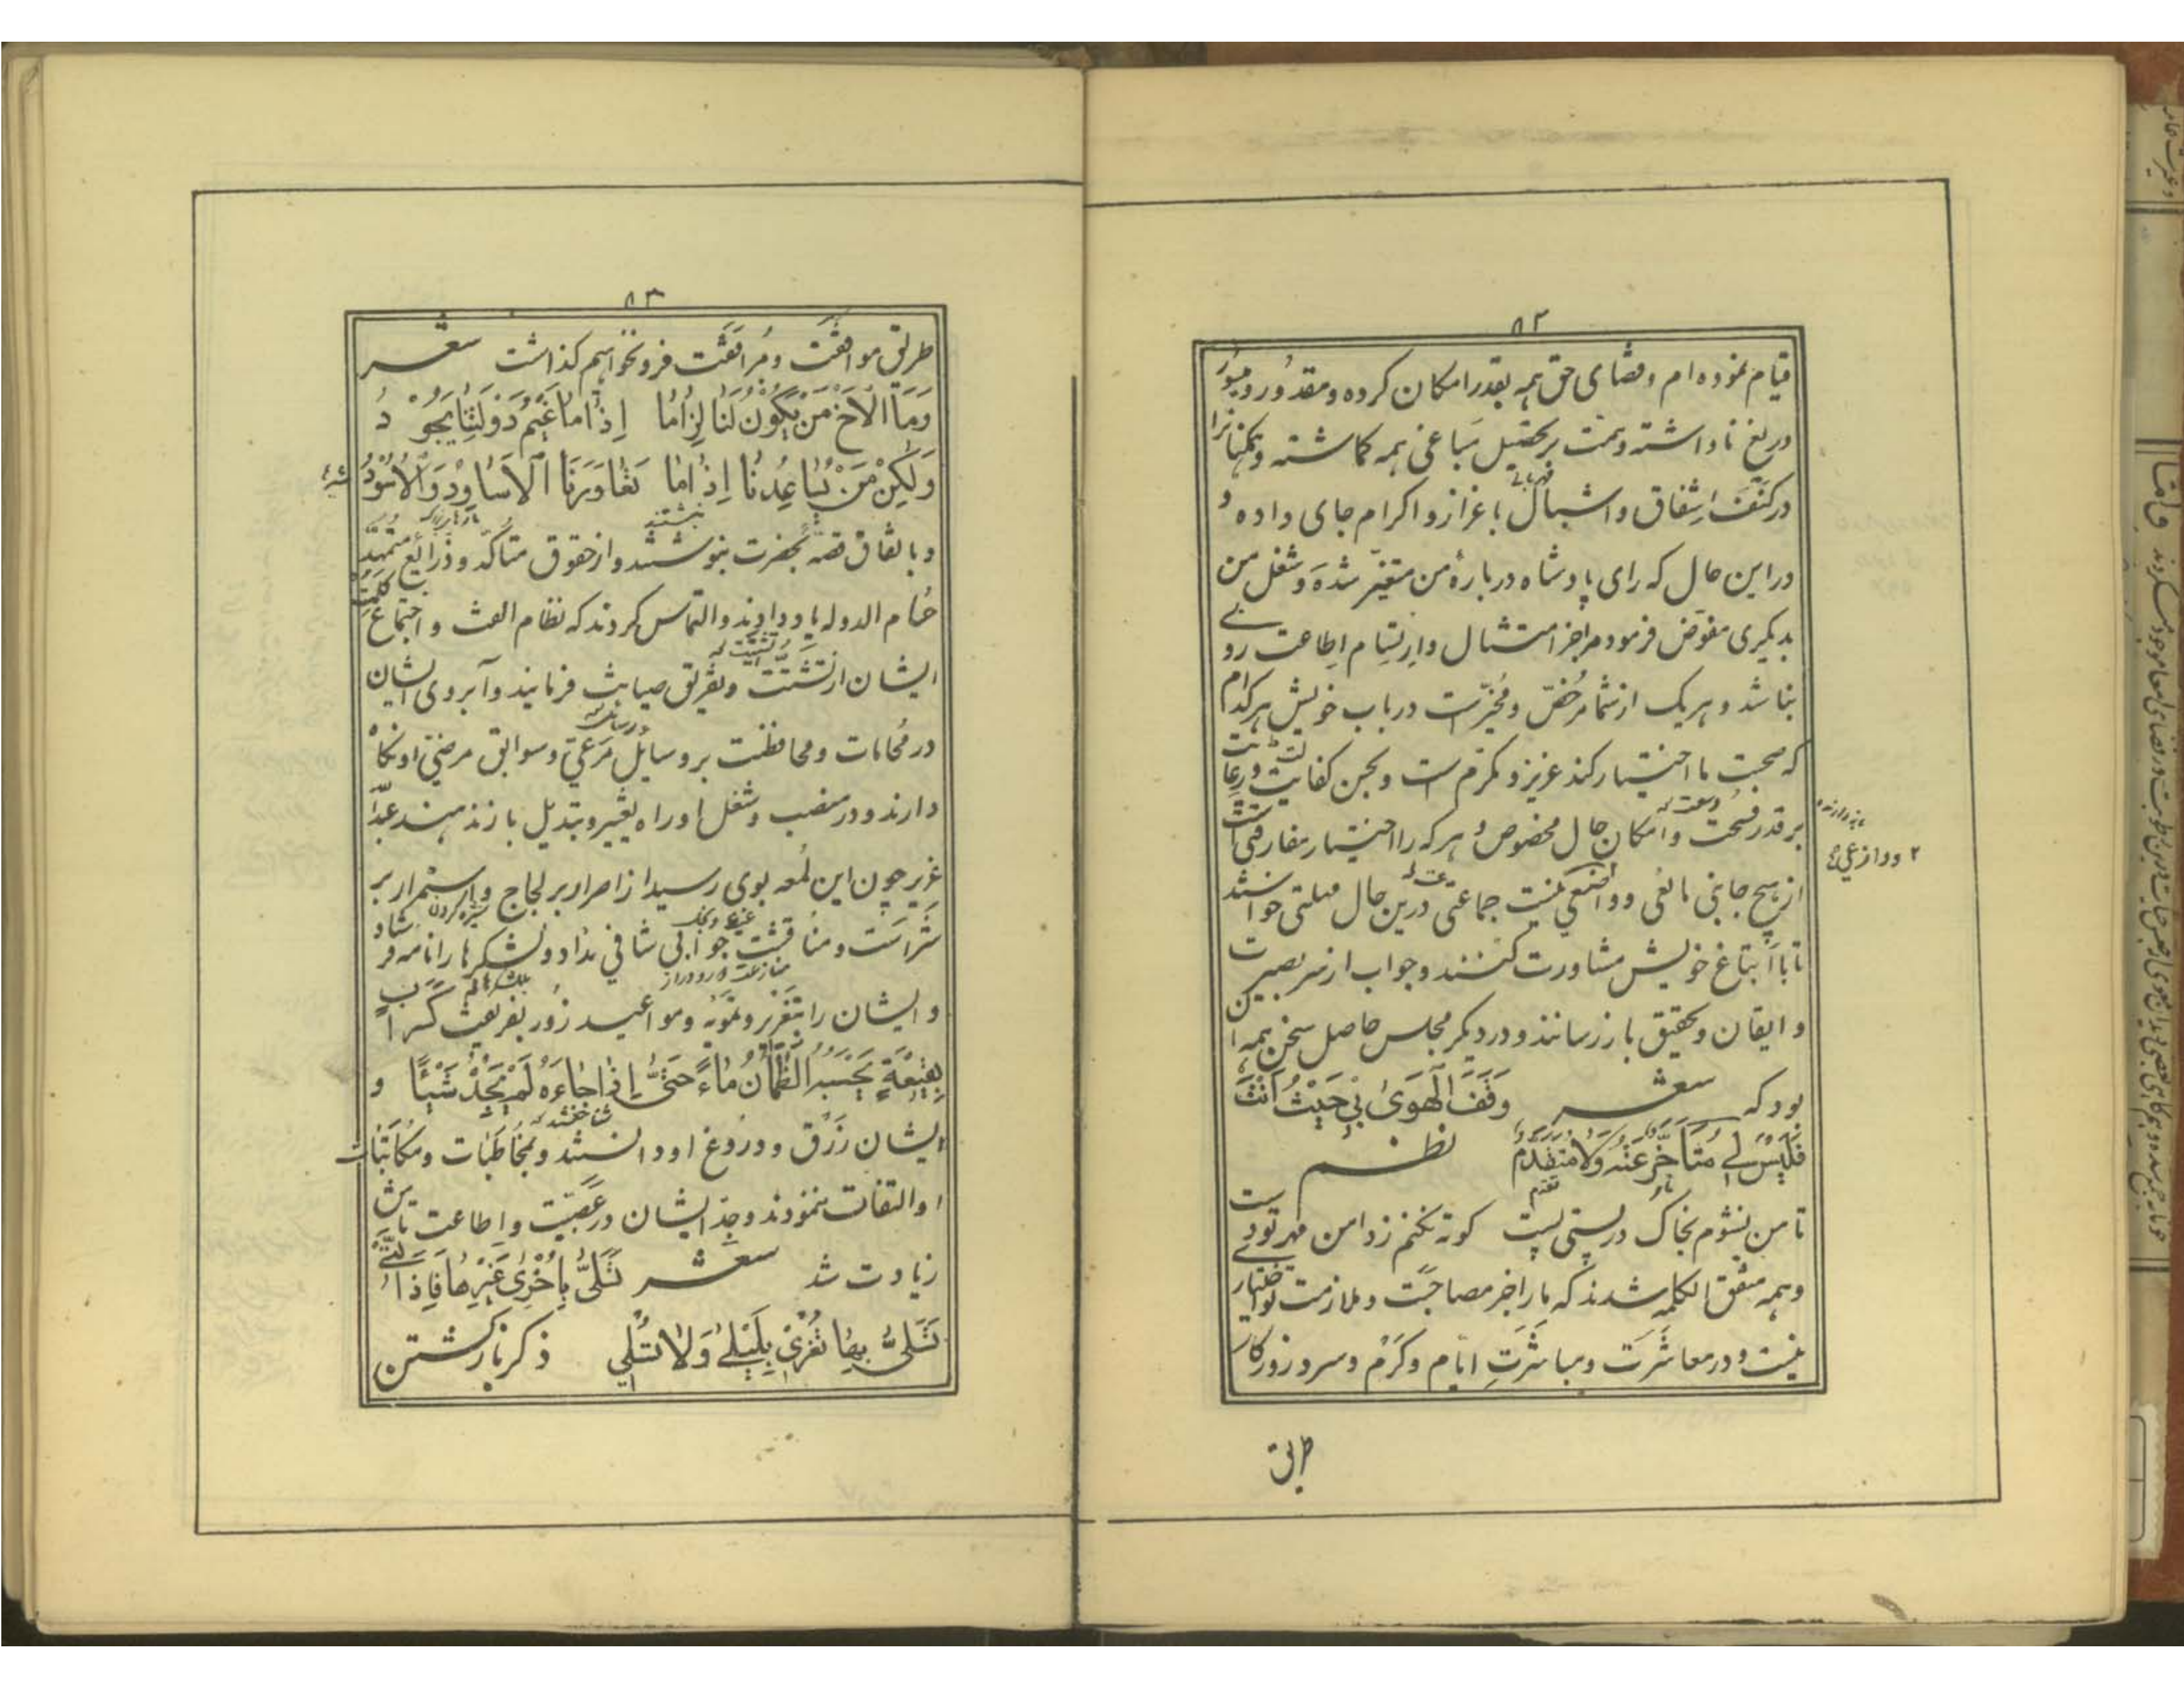 ۸۲
قیام نموده ام و قضای حق همه بقدر امکان کرده و مقدور و میسور
دریغ نا داشته و همت بر تحصیل مباغی همه کماشته و همکنانرا
در کنف اشفاق و اشبال باعزاز و اکرام جای داده و
در این حال که رای پادشاه دربارهٔ من متغیّر شده و شغل من
بدیکری مفوّض فرمود مراجز امتثال و ارتسام اطاعت رویی
نباشد و هریک از شما مرخّص و مخیّرست در باب خویش هرکدام
که صحبت ما اختیار کند عزیز و مکرّم است و بحسن کفایت و رعایت
بر قدر فسحت و امکان حال مخصوص و هر که را اختیار مفارقتی است
از هیچ جانبی مانعی و وازعی نیست جماعتی درین حال مهلتی خواستند
تا با اتباع خویش مشاورت کنند و جواب از سر بصیرت
و ایقان و تحقیق باز رسانند و در دیکر مجلس حاصل سخن همه این
بود که شعر وَقَفَ الْهَوَىٰ بِي حَيْثُ أَنْتَ
فَلَيْسَ لِي مُتَأَخَّرٌ عَنْهُ وَلَا مُتَقَدَّمُ نظم
تا من نشوم بخاک در پستی پست کوته نکنم ز دامن مهر تو دست
و همه متفق الکلمه شدند که ما را جز مصاحبت و ملازمت تو اختیار
نیست و در معاشرت و مباشرتِ ایام و کرم و سرد روزکار
۲ و وازعی
طریق
۸۳
طریق موافقت و مرافقت فرو نخواهیم کذاشت شعر
وَمَا الْأَخُ مَنْ يَكُونُ لَنَا لِزَامًا إِذَا مَا غَيْمُ دَوْلَتِنَا يَجُودُ
وَلٰكِنْ مَنْ يُسَاعِدُنَا إِذَا مَا تَعَاوَرَنَا الْأَسَاوِدُ وَالْأُسُودُ
و باتفاق قصه بحضرت بنوشتند و از حقوق متاکّد و ذرائع متمهّد
حسام الدوله یاد دادند و التماس کردند که نظام الفت و اجتماع کلمت
ایشان از تشتّت و تفریق صیانت فرمایند و آبروی ایشان
در محامات و محافظت بر وسایل مرعی و سوابق مرضیّ او نکاه
دارند و در منصب و شغل او راه تغییر و تبدیل باز ندهند عبداللّه
عزیر چون این لمعه بوی رسید از اصرار بر لجاج و استمرار بر
شراست و مناقشت جوابی شافی نداد و لشکرها را نامه فرستاد
و ایشان را بتغریر و تمویه و مواعید زور بفریفت کَسَرَابٍ
بِقِيعَةٍ يَحْسَبُهُ الظَّمْآنُ مَاءً حَتَّىٰ إِذَا جَاءَهُ لَمْ يَجِدْهُ شَيْئًا و
ایشان زرق و دروغ او دانستند و بمخاطبات و مکاتبات
او التفات ننمودند و جدّ ایشان در عصبیّت و اطاعت تاش
زیادت شد شعر تَسَلَّى بِأُخْرَىٰ غَيْرِهَا فَإِذَا الَّتِي
تَسَلَّى بِهَا تُغْرِي بِلَيْلَىٰ وَلَا تُسْلِي ذکر باز کشتن